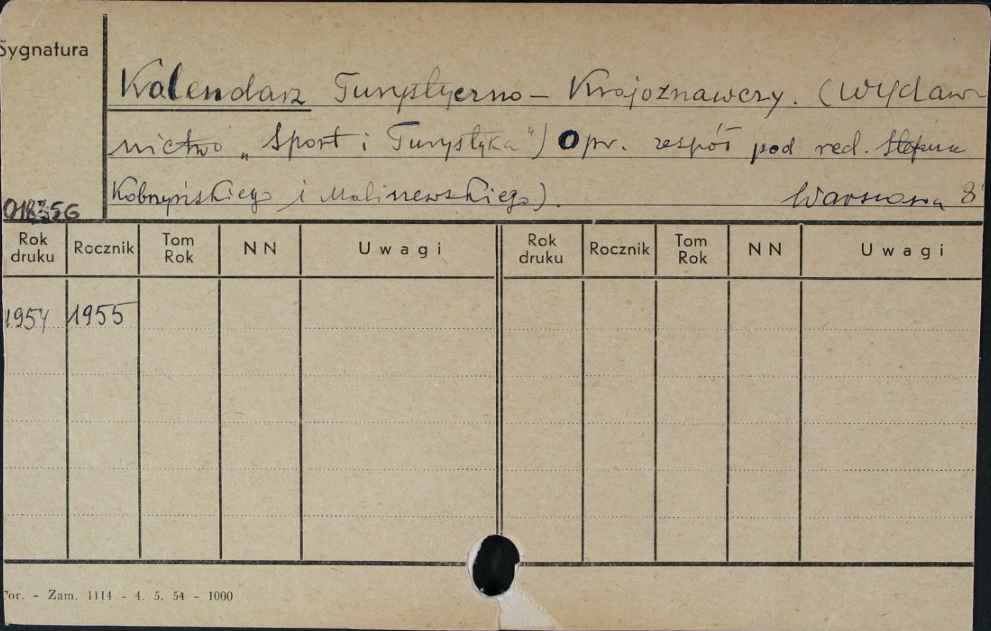 Sygnatura
Kalendarz Turystyczno - Krajoznawczy. (Wydaw-
nictwo „Sport i Turystyka") Opr. zespół pod red. Stefana
Kobnyńskiego i Maliszewskiego). Warszawa 8°
Rok druku Rocznik Tom Rok NN Uwagi Rok druku Rocznik Tom Rok NN Uwagi
1954 1955
For. - Zam. 1114 - 4. 5. 54 - 1000